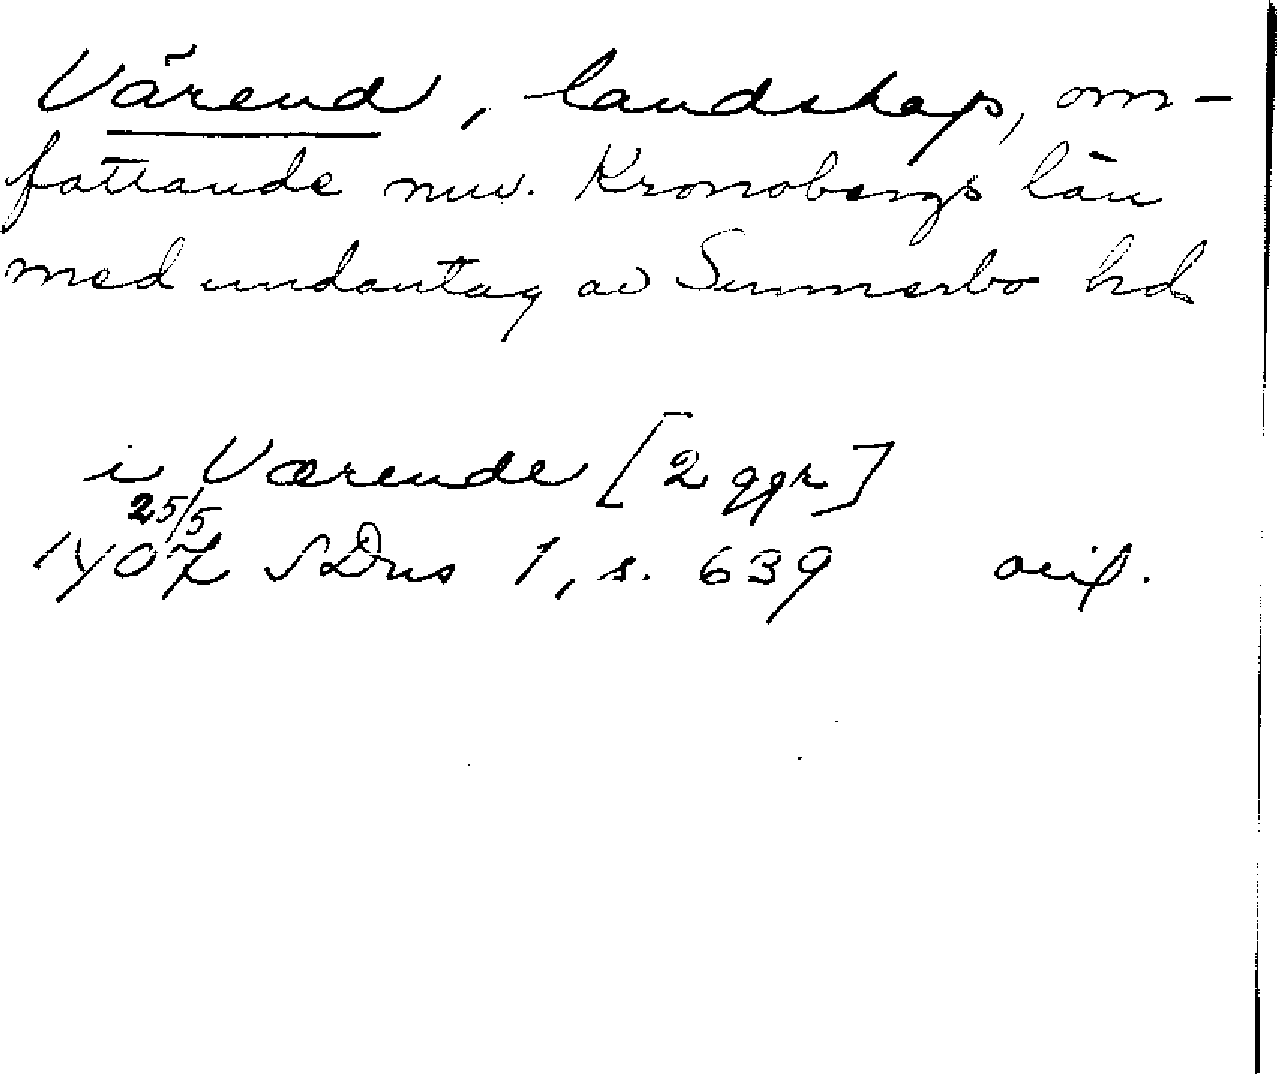 Värend, landskap, om-
fattande nuv. Kronobergs län
med undantag av Sunnerbo hd
i Værende [2 ggr]
25/5
1407 SDns 1, s. 639 avskr.